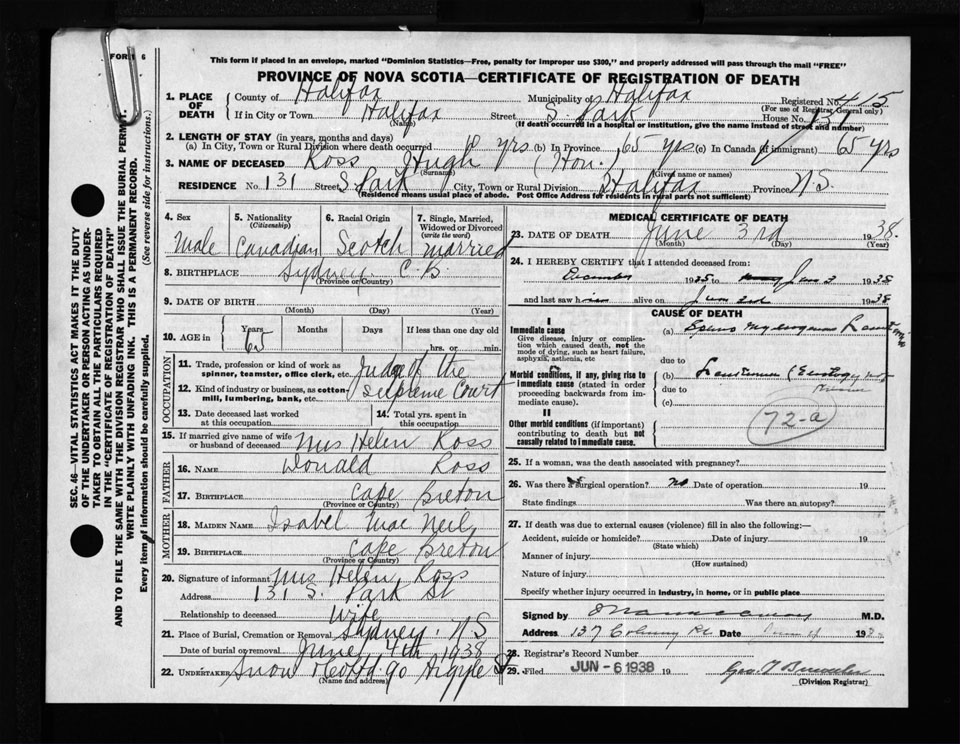 FORM 6
This form if placed in an envelope, marked "Dominion Statistics—Free, penalty for improper use $300," and properly addressed will pass through the mail "FREE"
PROVINCE OF NOVA SCOTIA—CERTIFICATE OF REGISTRATION OF DEATH
1. PLACE OF DEATH { County of Halifax Municipality of Halifax Registered No. 415
(For use of Registrar General only)
If in City or Town Halifax Street S. Park House No. 131
(Name) (If death occurred in a hospital or institution, give the name instead of street and number)
2. LENGTH OF STAY (in years, months and days)
(a) In City, Town or Rural Division where death occurred yrs (b) In Province 65 yrs (c) In Canada (if immigrant) 65 yrs
3. NAME OF DECEASED Ross Hugh (Hon.)
(Surname) (Given name or names)
RESIDENCE No. 131 Street S. Park City, Town or Rural Division Halifax Province N.S.
(Residence means usual place of abode. Post Office Address for residents in rural parts not sufficient)
SEC. 46—VITAL STATISTICS ACT MAKES IT THE DUTY
OF THE UNDERTAKER OR PERSON ACTING AS UNDER-
TAKER TO OBTAIN ALL THE PARTICULARS REQUIRED
IN THE "CERTIFICATE OF REGISTRATION OF DEATH"
AND TO FILE THE SAME WITH THE DIVISION REGISTRAR WHO SHALL ISSUE THE BURIAL PERMIT.
WRITE PLAINLY WITH UNFADING INK. THIS IS A PERMANENT RECORD.
Every item of information should be carefully supplied. (See reverse side for instructions.)
4. Sex 5. Nationality 6. Racial Origin 7. Single, Married,
(Citizenship) Widowed or Divorced
(write the word)
Male Canadian Scotch married
8. BIRTHPLACE Sydney C.B.
(Province or Country)
9. DATE OF BIRTH
(Month) (Day) (Year)
10. AGE in { Years Months Days If less than one day old
65 hrs. or min.
OCCUPATION
11. Trade, profession or kind of work as
spinner, teamster, office clerk, etc. Judge of the
12. Kind of industry or business, as cotton-
mill, lumbering, bank, etc. Supreme Court
13. Date deceased last worked 14. Total yrs. spent in
at this occupation this occupation
15. If married give name of wife
or husband of deceased Mrs Helen Ross
FATHER
16. NAME Donald Ross
17. BIRTHPLACE Cape Breton
(Province or Country)
MOTHER
18. MAIDEN NAME Isabel MacNeil
19. BIRTHPLACE Cape Breton
(Province or Country)
20. Signature of informant Mrs Helen Ross
Address 131 S. Park St
Relationship to deceased Wife
21. Place of Burial, Cremation or Removal Sydney N.S
Date of burial or removal June 4th 1938
22. UNDERTAKER Snow
(Name and address)
MEDICAL CERTIFICATE OF DEATH
23. DATE OF DEATH June 3rd 1938.
(Month) (Day) (Year)
24. I HEREBY CERTIFY that I attended deceased from:
December 1935 to June 3 1938
and last saw him alive on June 2nd 1938
CAUSE OF DEATH
I
Immediate cause (a)
Give disease, injury or complica-
tion which caused death, not the
mode of dying, such as heart failure,
asphyxia, asthenia, etc due to
Morbid conditions, if any, giving rise to (b)
immediate cause (stated in order due to
proceeding backwards from im-
mediate cause). (c)
II
Other morbid conditions (if important)
contributing to death but not
causally related to immediate cause.
72-a
25. If a woman, was the death associated with pregnancy?
26. Was there a surgical operation? No Date of operation 19
State findings Was there an autopsy?
27. If death was due to external causes (violence) fill in also the following:—
Accident, suicide or homicide? Date of injury 19
(State which)
Manner of injury
(How sustained)
Nature of injury
Specify whether injury occurred in industry, in home, or in public place
Signed by M.D.
Address 137 Date June 4 19
28. Registrar's Record Number
29. Filed JUN - 6 1938 19
(Division Registrar)